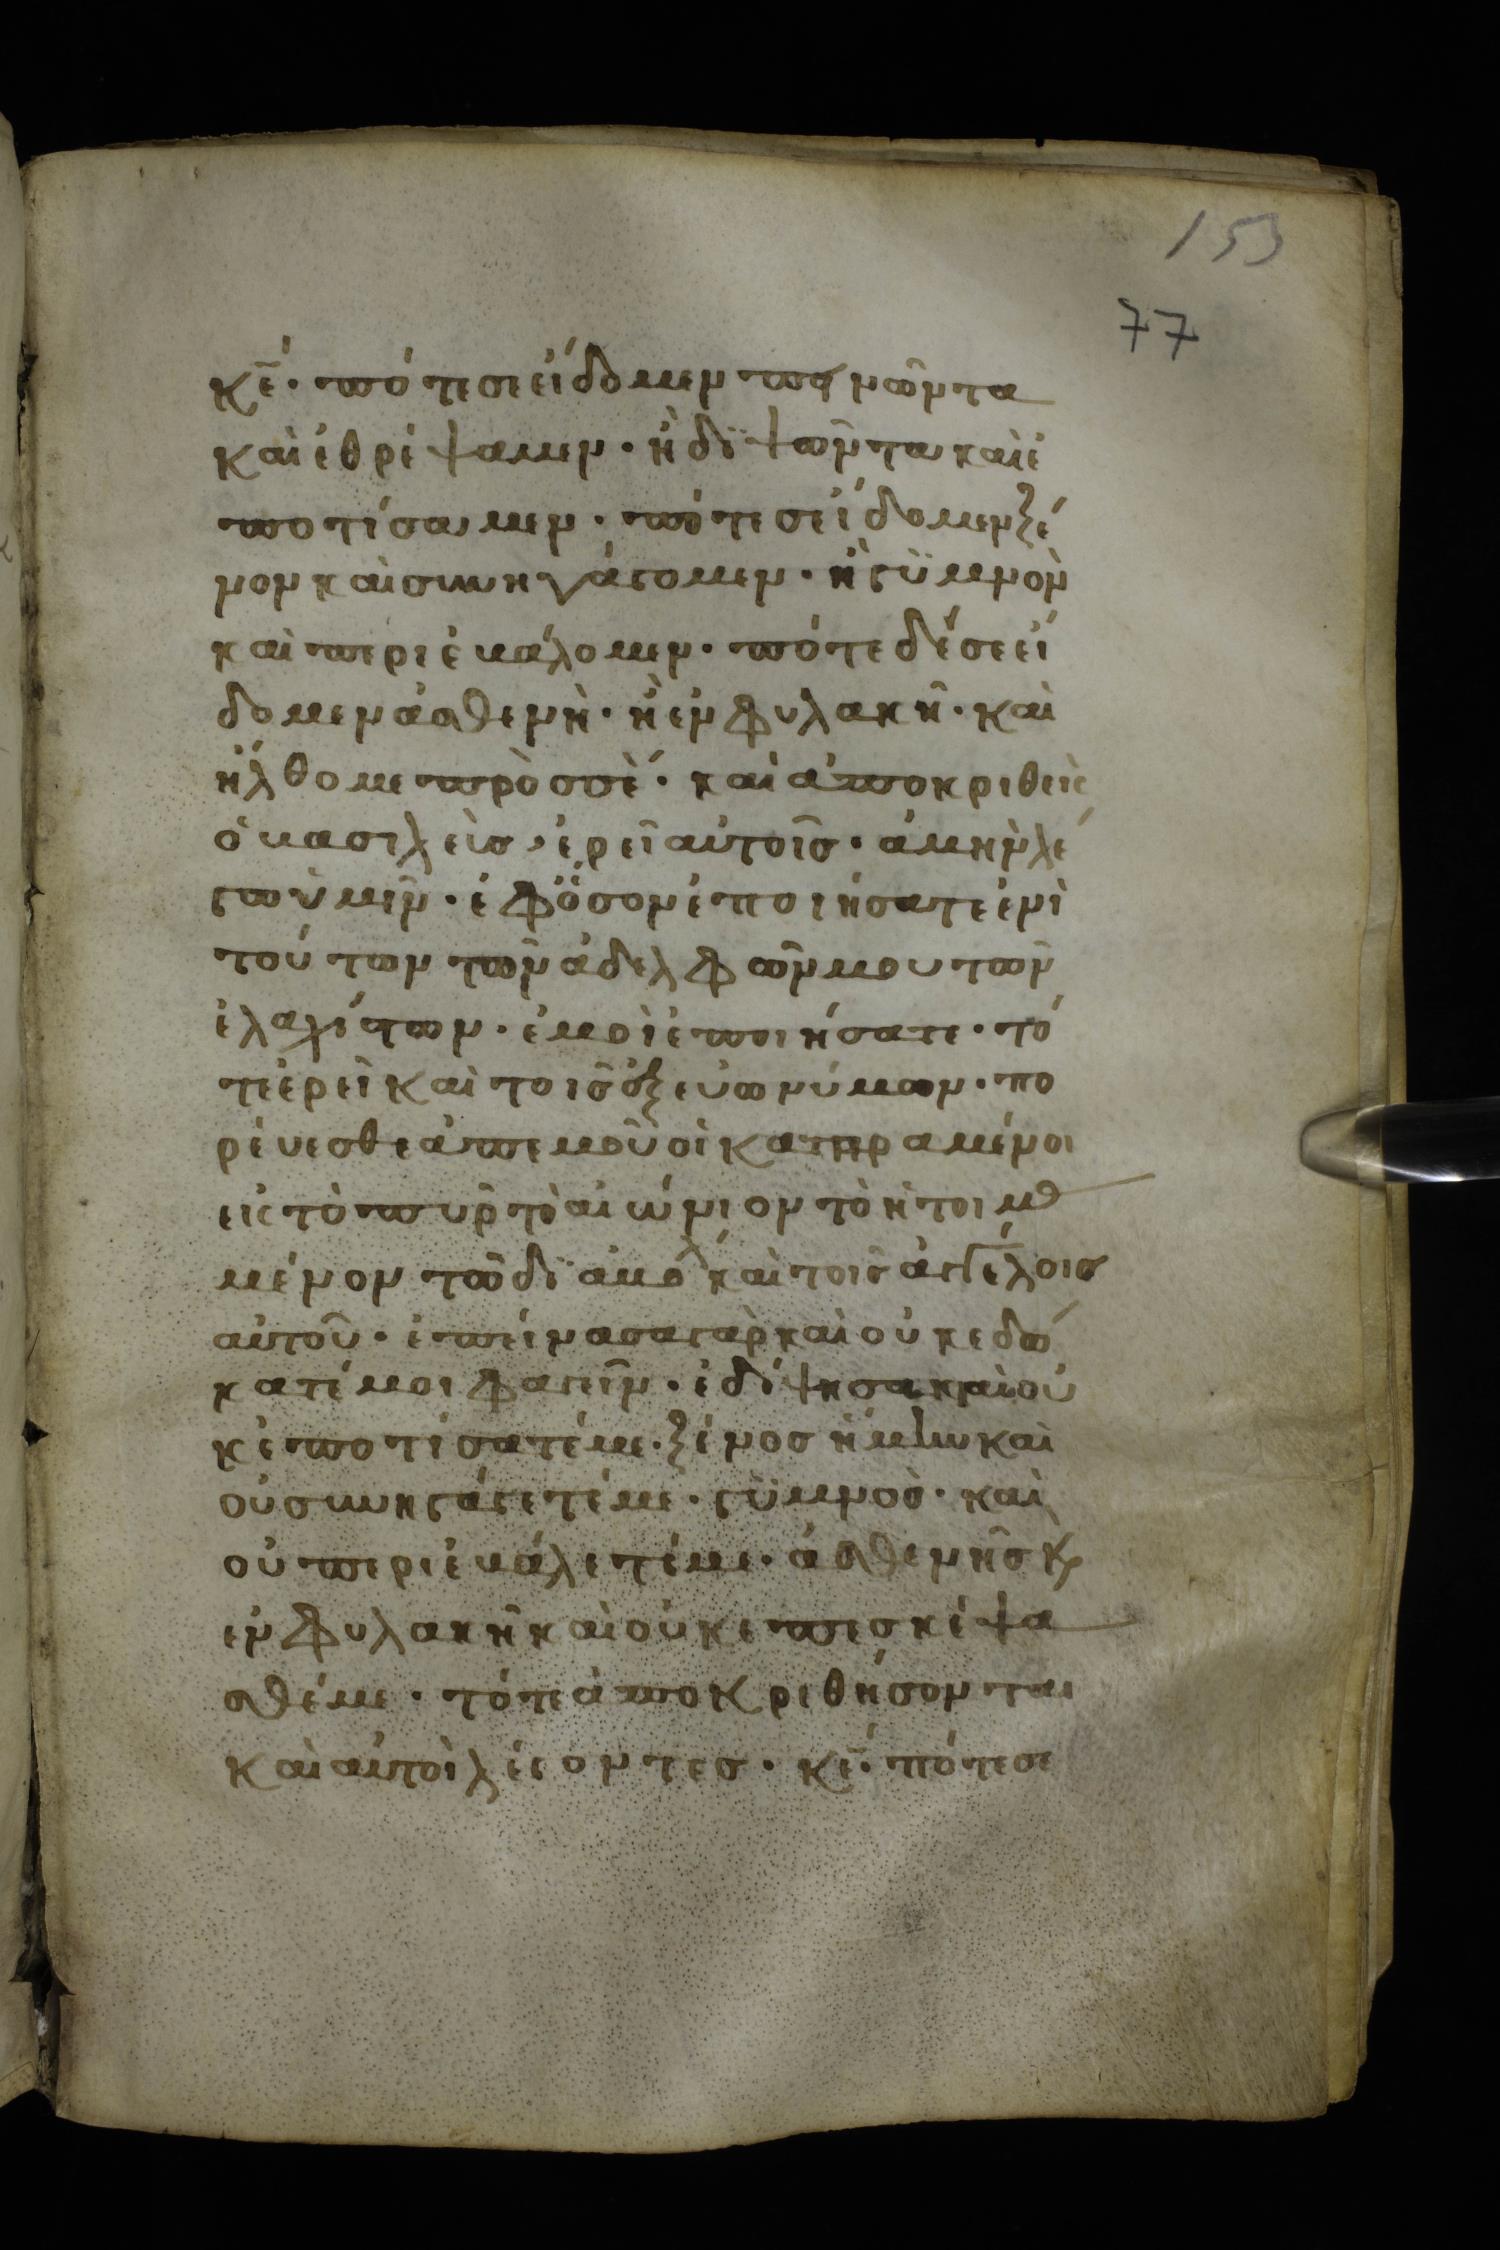 153
77
κε̅· πότε σε εἴδομεν πεινῶντα
καὶ ἐθρέψαμεν· ἢ διψῶντα καὶ ἐ
ποτίσαμεν· πότε σε ἴδομεν ξέ
νον καὶ συνηγάγομεν· ἢ γϋμνὸν
καὶ περιεβάλομεν· πότε δέ σε εἴ
δομεν ἀσθενὴ· ἢ ἐν φυλακῆ· καὶ
ἤλθομε πρὸς σὲ· καὶ ἀποκριθεὶς
ὁ βασιλεὺς, ἐρεῖ αὐτοῖς· ἀμὴν λέ
γω ὑμῖν· ἐφ ὅσον ἐποιήσατε ἑνὶ
τούτων τῶν ἀδελφῶν μου τῶν
ἐλαχίστων· ἐμοὶ ἐποιήσατε· τό
τε ἐρεῖ καὶ τοῖς ἐξ εὐωνύμων· πο
ρέυεσθε ἀπεμοῦ οἱ κατηραμένοι
εἰς τὸ πῦρ τὸ αἰώνιον τὸ ἡτοιμα
μένον τῶ διαβολ καὶ τοῖς ἀγγέλοις
αὐτοῦ· ἐπείνασα γὰρ καὶ οὐκ εδώ
κατέ μοι φαγεῖν· ἐδίψησα καὶ οὐ
κ ἐποτίσατέ με· ξένος ἤμην καὶ
οὐ συνηγάγετέ με· γϋμνὸς· καὶ
οὐ περιεβάλετέ με· ἀσθενῆς κ
ἐν φυλακῆ καὶ οὐκ επεσκέψα
σθέ με· τότε ἀποκριθήσονται
καὶ αὐτοὶ λέγοντες· κε̅· πότε σε